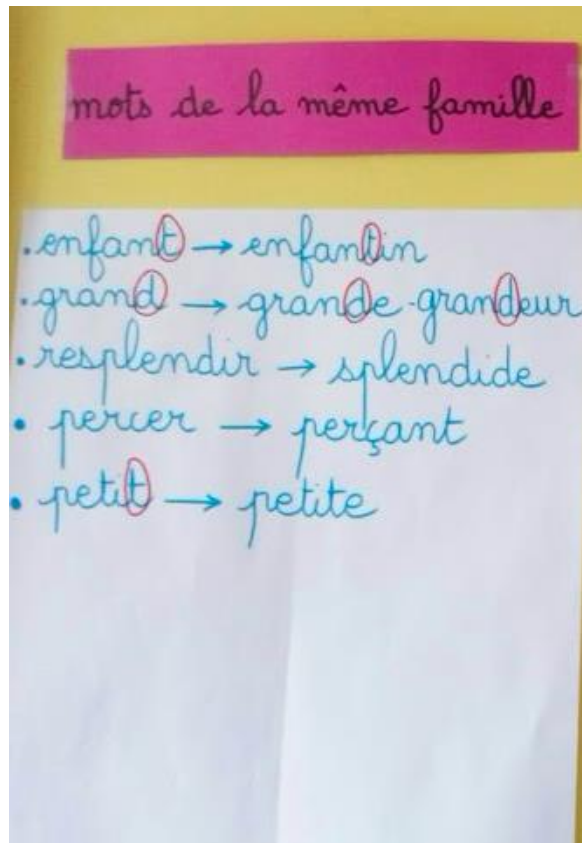 mots de la même famille
. enfant → enfantin
. grand → grande - grandeur
. resplendir → splendide
. percer → perçant
. petit → petite